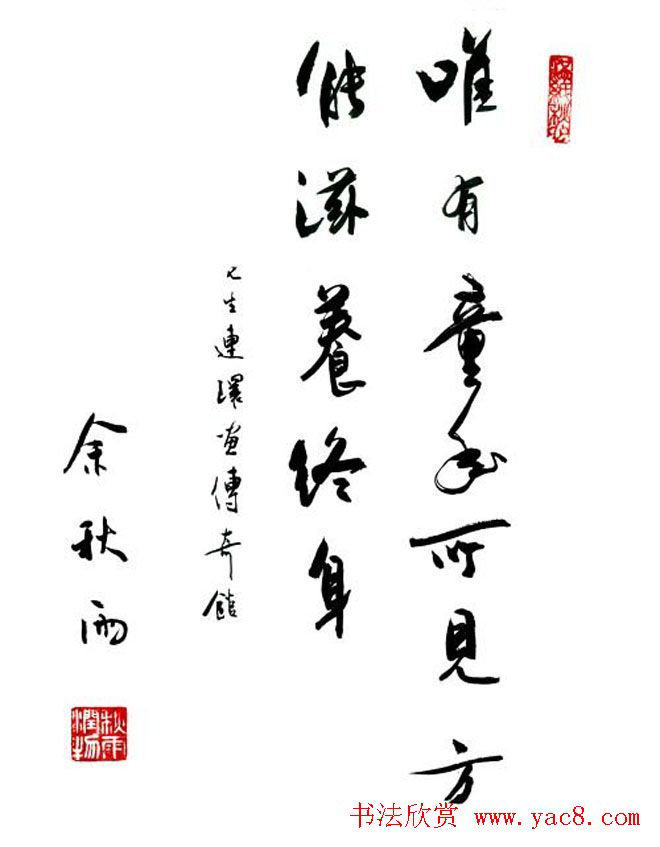 唯有童年所見方
能滋養終身
生連環畫傳奇館
余秋雨
书法欣赏 www.yac8.com